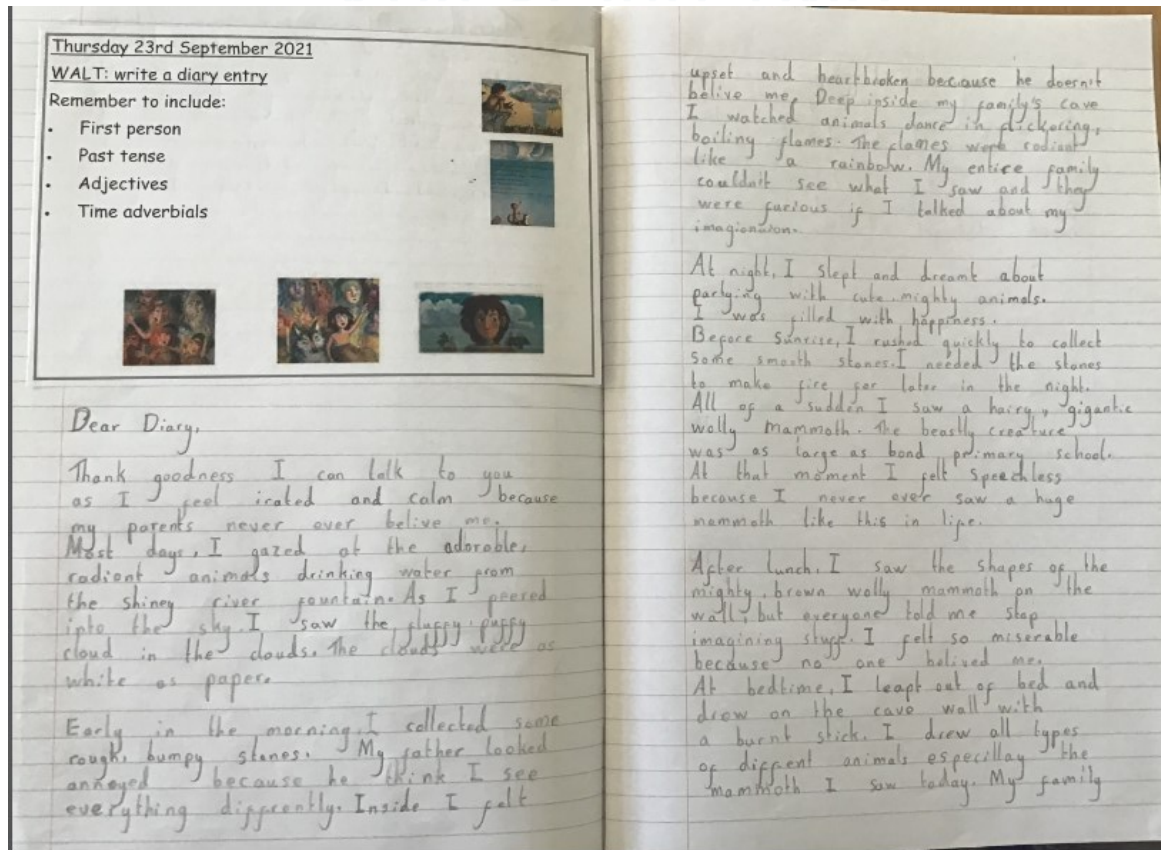 Thursday 23rd September 2021
WALT: write a diary entry
Remember to include:
• First person
• Past tense
• Adjectives
• Time adverbials
Dear Diary,
Thank goodness I can talk to you
as I feel irated and calm because
my parents never ever belive me.
Most days, I gazed at the adorable,
radiant animals drinking water from
the shiney river fountain. As I peered
into the sky. I saw the fluffy puffy
cloud in the clouds. The clouds were as
white as paper.
Early in the morning, I collected some
rough, bumpy stones. My father looked
annoyed because he think I see
everything diffrently. Inside I felt
upset and heartbroken because he doesn't
belive me. Deep inside my family's cave
I watched animals dance in flickering,
boiling flames. The flames were radiant
like a rainbow. My entire family
couldn't see what I saw and they
were furious if I talked about my
imagionaion.
At night, I slept and dreamt about
partying with cute mighty animals.
I was filled with happiness.
Before sunrise, I rushed quickly to collect
some smooth stones. I needed the stones
to make fire for later in the night.
All of a sudden I saw a hairy, gigantic
wolly mammoth. The beastly creature
was as large as bond primary school.
At that moment I felt speechless
because I never ever saw a huge
mammoth like this in life.
After lunch, I saw the shapes of the
mighty, brown wolly mammoth on the
wall, but everyone told me stop
imagining stuff. I felt so miserable
because no one belived me.
At bedtime, I leapt out of bed and
drew on the cave wall with
a burnt stick. I drew all types
of diffent animals especillay the
mammoth I saw today. My family